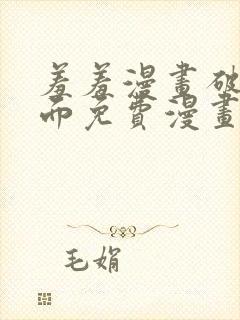 羞羞漫畫破
而免費漫畫
毛娟